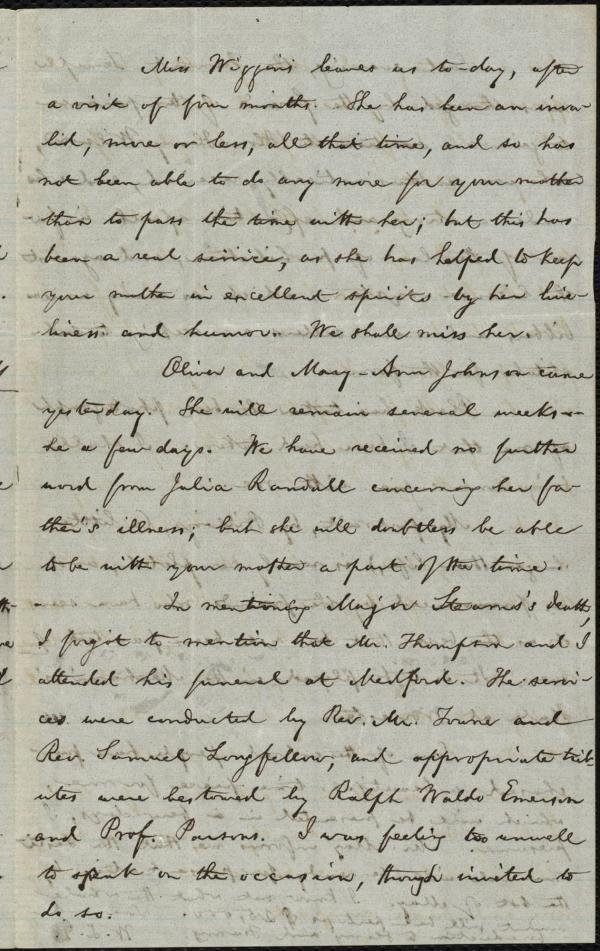 Miss Wiggins leaves us to-day, after
a visit of four months. She has been an inva-
lid, more or less, all that time, and so has
not been able to do any more for your mother
than to pass the time with her; but this has
been a real service, as she has helped to keep
your mother in excellent spirits by her live-
liness and humor. We shall miss her.
Oliver and Mary-Ann Johnson came
yesterday. She will remain several weeks—
he a few days. We have received no further
word from Julia Randall concerning her fa-
ther's illness; but she will doubtless be able
to be with your mother a part of the time.
In mentioning Major Stearns's death,
I forgot to mention that Mr. Thompson and I
attended his funeral at Medford. The servi-
ces were conducted by Rev. Mr. Towne and
Rev. Samuel Longfellow, and appropriate trib-
utes were bestowed by Ralph Waldo Emerson
and Prof. Parsons. I was feeling too unwell
to speak on the occasion, though invited to
do so.